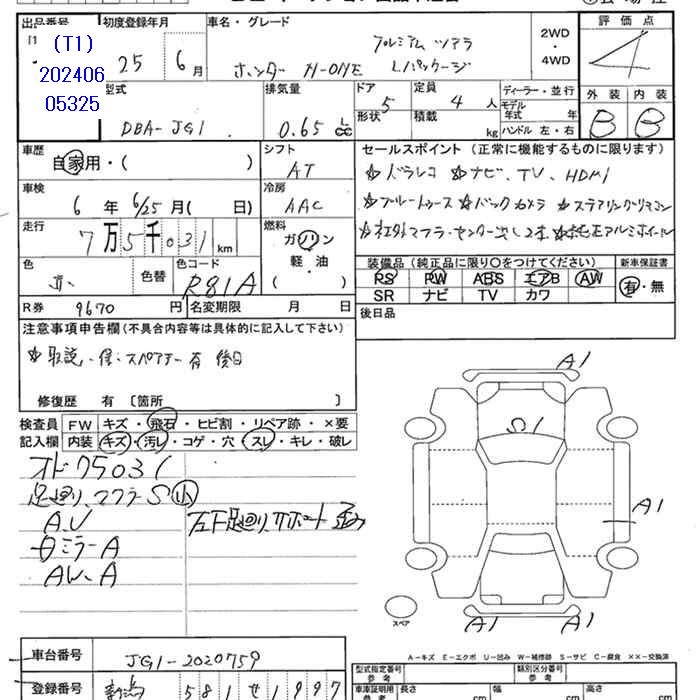 出品番号 初度登録年月 車名・グレード 評価点
(T1)
202406
05325
25 6月
プレミアム ツアラー
ホンダ N-ONE Lパッケージ
2WD
・
4WD
4
外装 内装
B B
型式 DBA-JG1
排気量 0.65 L cc
ドア 5 定員 4人
形状 積載 kg
ディーラー・並行
モデル年式 年
ハンドル 左・右
車歴 自家用・( )
シフト AT
セールスポイント (正常に機能するものに限ります)
☆ドラレコ ☆ナビ、TV、HDMI
☆ブルートゥース ☆バックカメラ ☆ステアリングリモコン
☆社外マフラーセンター出し2本 ☆純正アルミホイール
車検 6年 6/25月( 日)
冷房 AAC
走行 7万5千031km
燃料 ガソリン
軽・油
( )
色 色替 色コード R81A
装備品 (純正品に限り○をつけてください) 新車保証書
PS PW ABS エアB AW 有・無
SR ナビ TV カワ
R券 9670円 名変期限 月 日
後日品
注意事項申告欄(不具合内容等は具体的に記入して下さい)
☆取説・保・スペアキー有 後日
修復歴 有 〔箇所 〕
検査員 FW キズ・飛石・ヒビ割・リペア跡・×要
記入欄 内装 キズ・汚レ・コゲ・穴・スレ・キレ・破レ
オドク75031
足廻り、マフラーS小
A.U 左下足廻りサポート歪み
ミラーA
AW.A
A1
S1
A1
A1 A1
スペア
A-キズ E-エクボ U-凹み W-補修跡 S-サビ C-腐食 ××-交換済
車台番号 JG1-2020759
型式指定番号 参考 類別区分番号 参考
登録番号 新潟 581 せ 1997
車庫証明用 参考 長さ cm 幅 cm 高さ cm